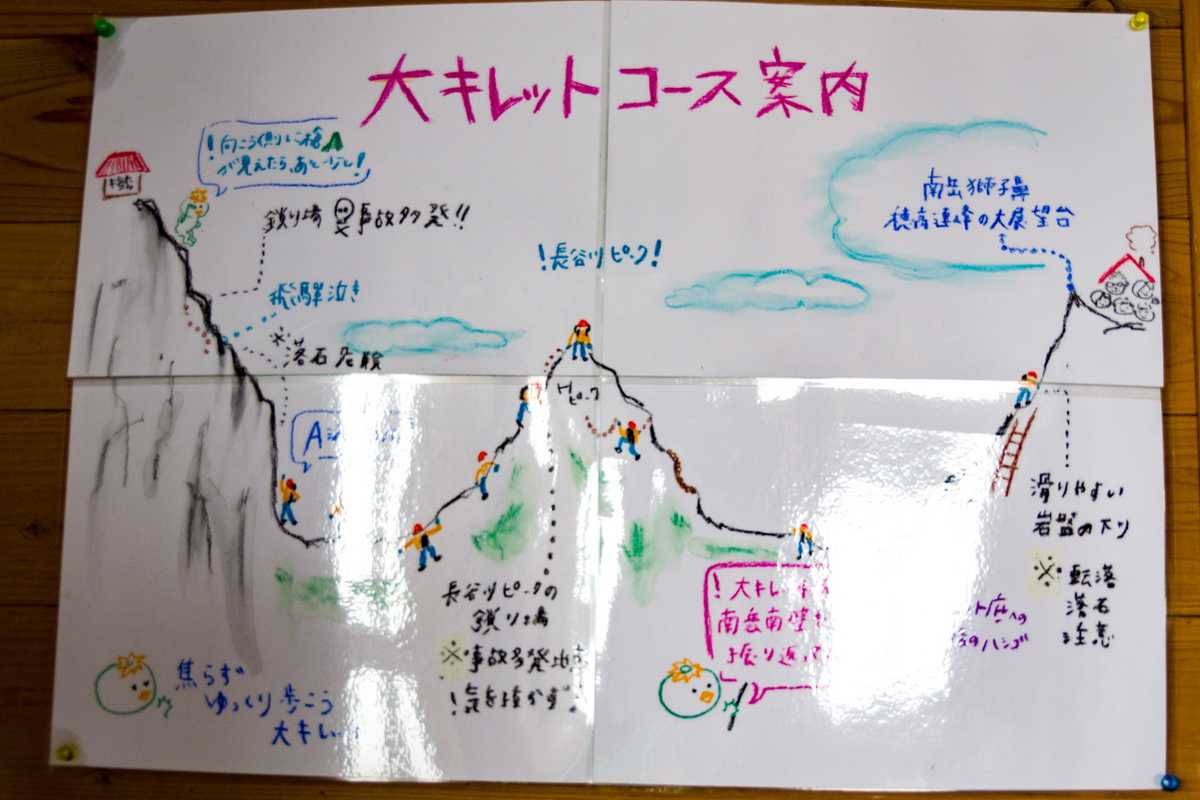 大キレットコース案内
！向こう側に槍
が見えたら、あと一汗！
鎖り場 事故多発!!
飛騨泣き
※落石危険
A
！長谷川ピーク！
南岳獅子鼻
穂高連峰の大展望台
Hピーク
長谷川ピークの
鎖り場
※事故多発地
！気を抜かず！
！大キレット
南岳南壁
振り返って
滑りやすい
岩盤の下り
※転落
落石
注意
ット底への
のハシゴ
焦らず
ゆっくり歩こう
大キレット